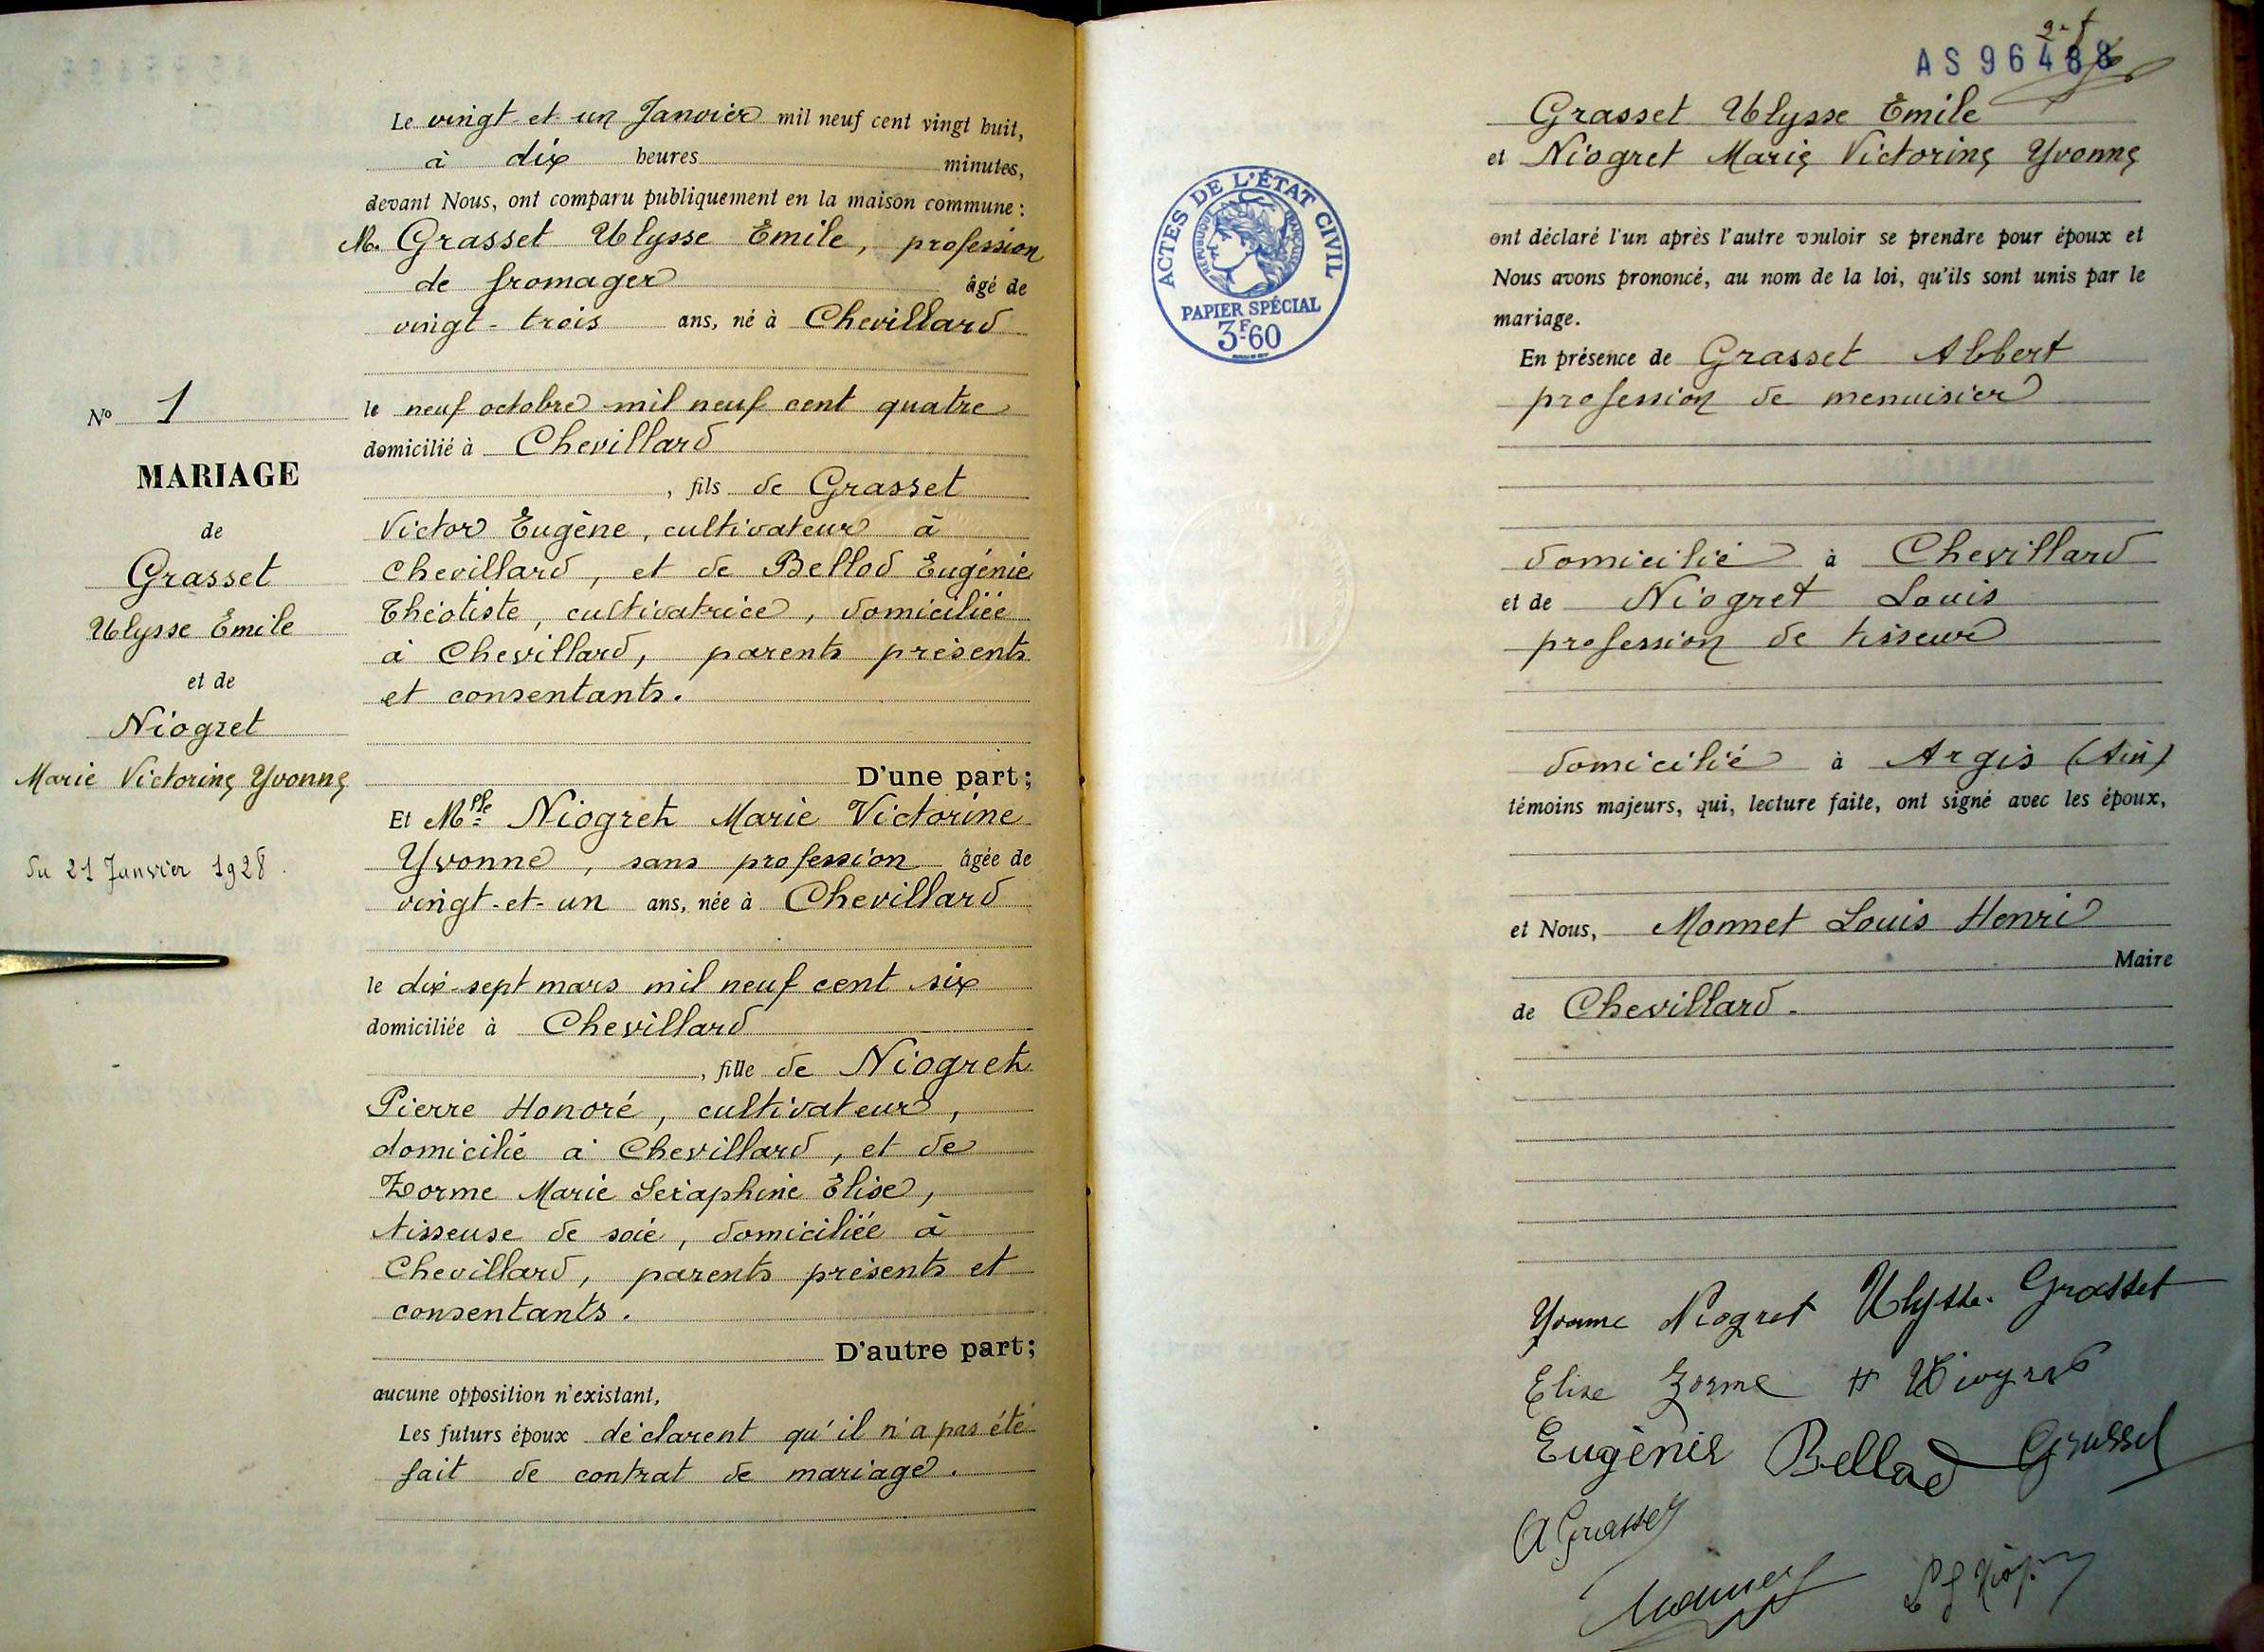 Le vingt-et-un Janvier mil neuf cent vingt huit,
à dix heures minutes,
devant Nous, ont comparu publiquement en la maison commune :
M. Grasset Ulysse Emile, profession
de fromager âgé de
vingt-trois ans, né à Chevillard
le neuf octobre mil neuf cent quatre
domicilié à Chevillard
, fils de Grasset
Victor Eugène, cultivateur à
Chevillard, et de Bellod Eugénie
Théotiste, cultivatrice, domiciliée
à Chevillard, parents présents
et consentants.
D'une part;
Et Mlle Niogret Marie Victorine
Yvonne, sans profession âgée de
vingt-et-un ans, née à Chevillard
le dix-sept mars mil neuf cent six
domiciliée à Chevillard
, fille de Niogret
Pierre Honoré, cultivateur,
domicilié à Chevillard, et de
Zorme Marie Séraphine Elise,
tisseuse de soie, domiciliée à
Chevillard, parents présents et
consentants.
D'autre part;
aucune opposition n'existant,
Les futurs époux déclarent qu'il n'a pas été
fait de contrat de mariage.
No 1
MARIAGE
de
Grasset
Ulysse Emile
et de
Niogret
Marie Victorine Yvonne
du 21 Janvier 1928.
AS 96488
Grasset Ulysse Emile
et Niogret Marie Victorine Yvonne
ont déclaré l'un après l'autre vouloir se prendre pour époux et
Nous avons prononcé, au nom de la loi, qu'ils sont unis par le
mariage.
En présence de Grasset Albert
profession de menuisier
domicilié à Chevillard
et de Niogret Louis
profession de tisseur
domicilié à Argis (Ain)
témoins majeurs, qui, lecture faite, ont signé avec les époux,
et Nous, Monnet Louis Henri
Maire
de Chevillard.
ACTES DE L'ÉTAT CIVIL
RÉPUBLIQUE FRANÇAISE
PAPIER SPÉCIAL
3F60
Yvonne Niogret Ulysse Grasset
Elise Zorme H Niogret
Eugénie Bellod Grasset
A Grasset
Monnet